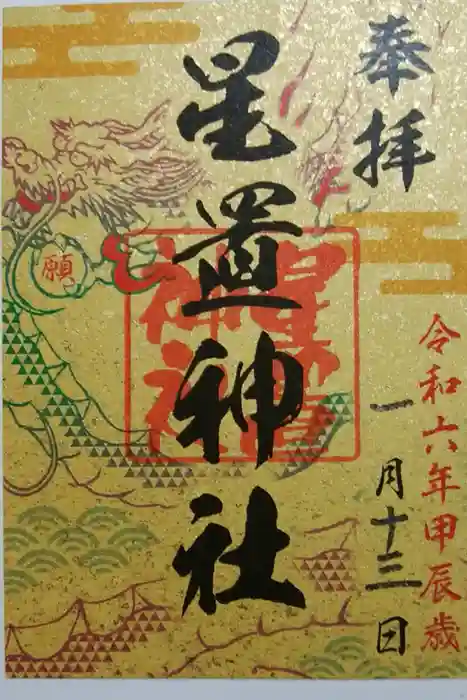 奉拝
令和六年甲辰歳
一月十三日
星置神社
星置
神社
願